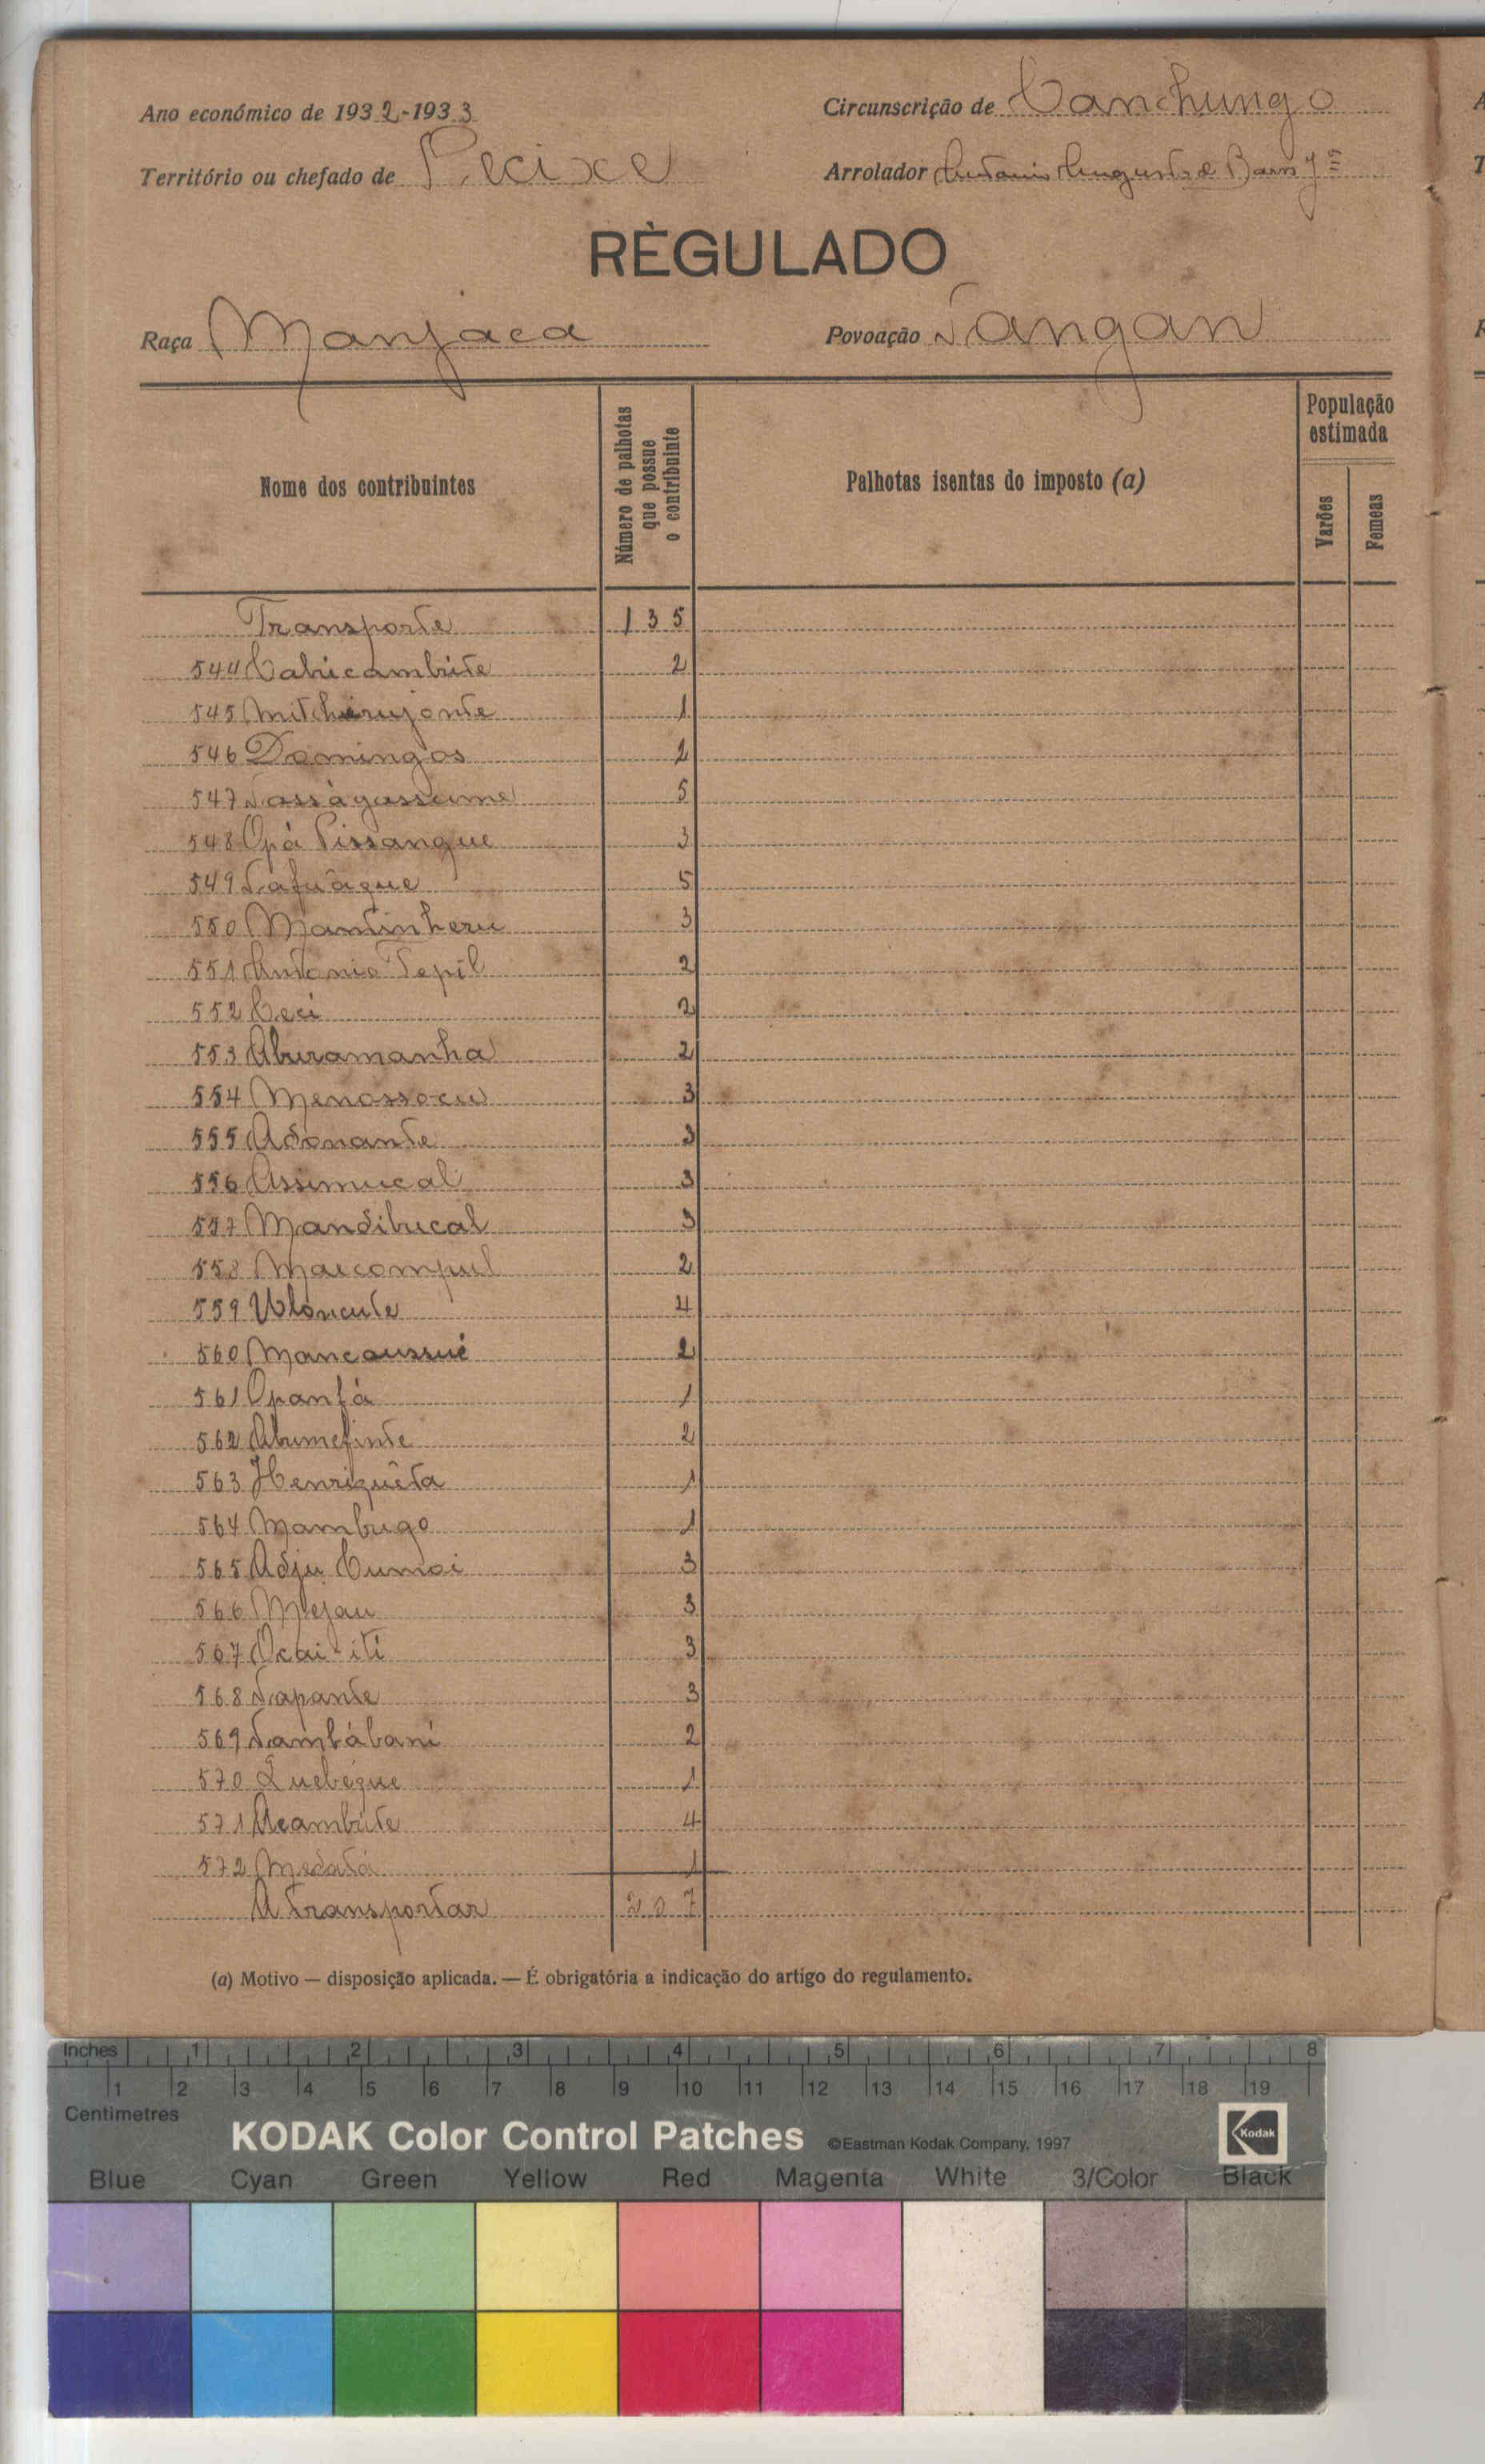 Ano económico de 1932-1933
Circunscrição de Canchungo
Território ou chefado de Pecixe
Arrolador Antonio Augusto de Barros Jor
RÈGULADO
Raça Manjaca
Povoação Nangan
Nome dos contribuintes
Número de palhotas que possue o contribuinte
Palhotas isentas do imposto (a)
População estimada
Varões
Femeas
Transporte 135
544 Cabicambute 2
545 1
546 Domingos 2
547 5
548 Opá Pissangue 3
549 Nafuágue 5
550 Mantinheru 3
551 Antonio Tepil 2
552 Ceci 2
553 Aburamanha 2
554 Menassocu 3
555 Adonante 3
556 Assimucal 3
557 Mandibucal 3
558 Maicompul 2
559 Uloncute 4
560 Mancaussué 2
561 Opanfá 1
562 Abumefinte 2
563 Henriquêta 1
564 Mambugo 1
565 Adju Cumoi 3
566 Mejau 3
567 Ocai-iti 3
568 Napante 3
569 Nambábani 2
570 Quebégue 1
571 Acambute 4
572 Medatá 1
A transportar 207
(a) Motivo — disposição aplicada. — É obrigatória a indicação do artigo do regulamento.
Inches 1 2 3 4 5 6 7 8
1 2 3 4 5 6 7 8 9 10 11 12 13 14 15 16 17 18 19
Centimetres
KODAK Color Control Patches ©Eastman Kodak Company, 1997 Kodak
Blue Cyan Green Yellow Red Magenta White 3/Color Black